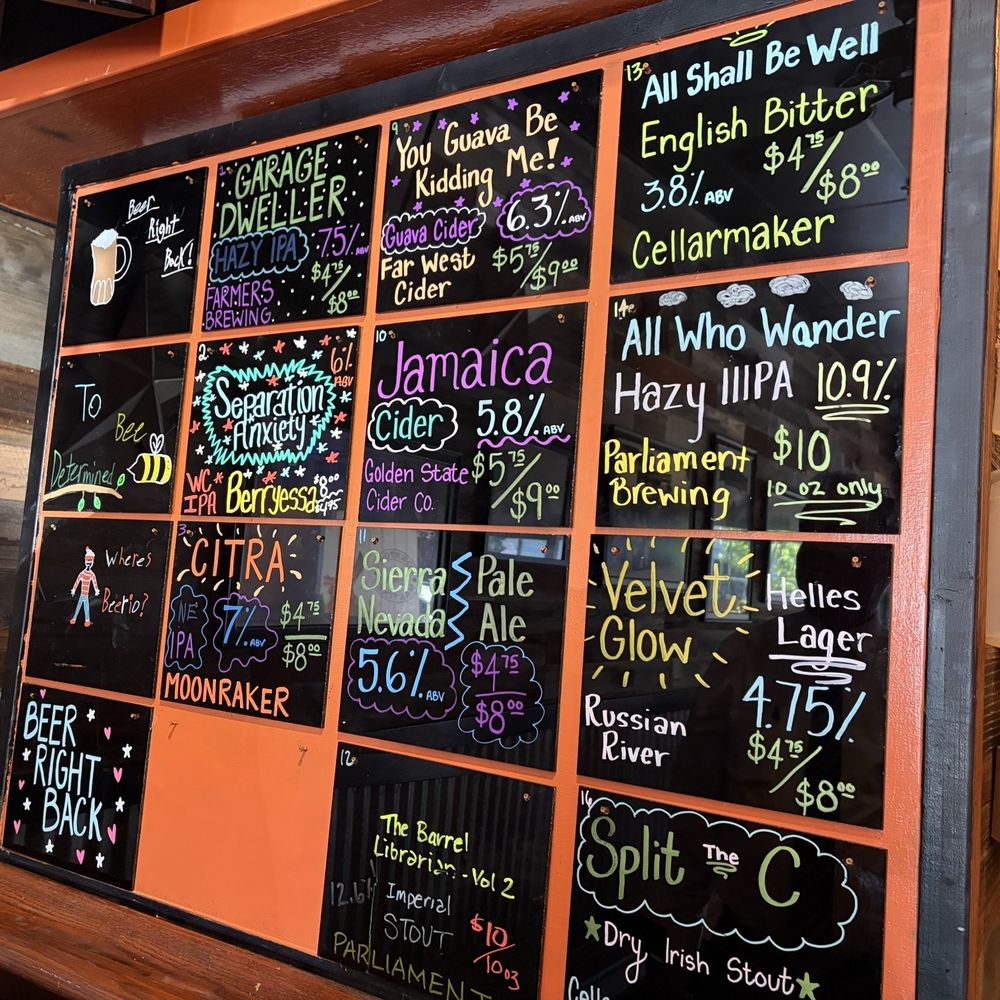 Beer
Right
Back!
To
Bee
Determined
Wheres
Beerio?
BEER
RIGHT
BACK
GARAGE
DWELLER
HAZY IPA 7.5% ABV
$4.75/$8.00
FARMERS
BREWING
2
6% ABV
Separation
Anxiety
WC IPA Berryessa
3
CITRA
NE IPA 7% ABV $4.75
$8.00
MOONRAKER
7 7
9
You Guava Be
Kidding Me!
Guava Cider 6.3% ABV
Far West
Cider
$5.75/$9.00
10
Jamaica
Cider 5.8% ABV
Golden State
Cider Co.
$5.75/$9.00
11
Sierra
Nevada
Pale
Ale
5.6% ABV
$4.75
$8.00
12
The Barrel
Librarian - Vol 2
12.6%
Imperial
STOUT
$10/10oz
PARLIAMENT
13
All Shall Be Well
English Bitter
3.8% ABV
$4.75/$8.00
Cellarmaker
14
All Who Wander
Hazy IIIPA 10.9%
Parliament
Brewing
$10
10 oz only
Velvet
Glow
Helles
Lager
Russian
River
4.75%
$4.75/$8.00
16
Split The C
Dry Irish Stout